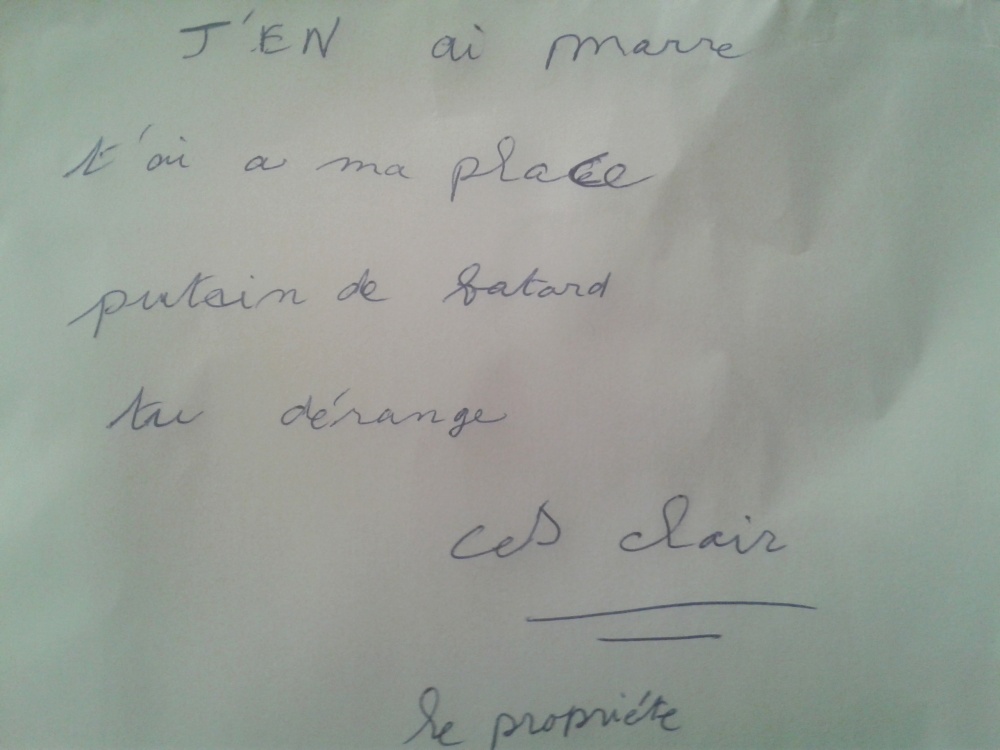 J'EN ai marre
t'ai a ma place
putain de batard
tu dérange
ces clair
le propriéte